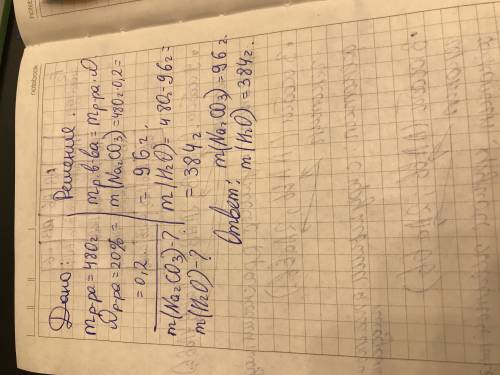 notebook
Дано:
mр-ра = 480г
ω р-ра = 20% =
= 0,2
m(Na₂CO₃) - ?
m(H₂O) - ?
Решение.
mр.в-ва = mр-ра·ω
m(Na₂CO₃) = 480г·0,2 =
= 96г.
m(H₂O) = 480г - 96г =
= 384г
Ответ: m(Na₂CO₃) = 96г.
m(H₂O) = 384г.